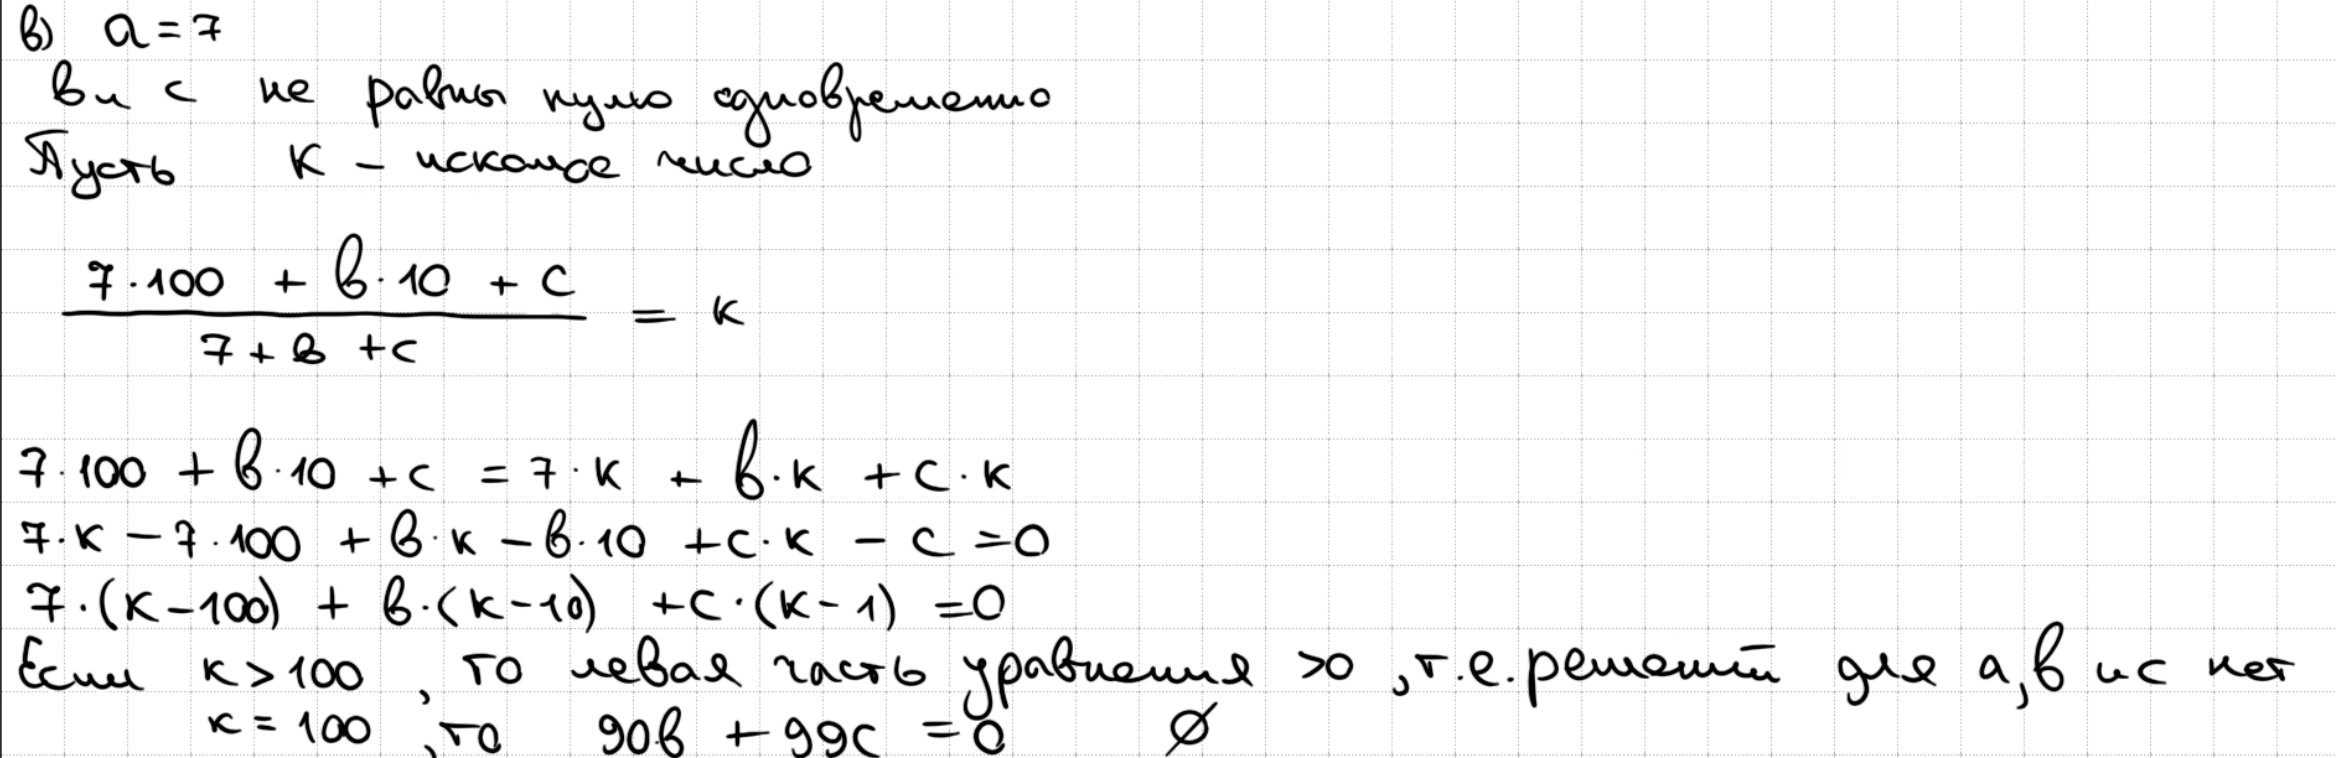 в) a = 7
в и с не равны нулю одновременно
Пусть К - искомое число
7·100 + в·10 + с
7 + в + с
= к
7·100 + в·10 + с = 7·к + в·к + с·к
7·к - 7·100 + в·к - в·10 + с·к - с = 0
7·(к-100) + в·(к-10) + с·(к-1) = 0
Если к > 100, то левая часть уравнения >0, т.е. решений для а, в и с нет
к = 100, то 90в + 99с = 0 ∅